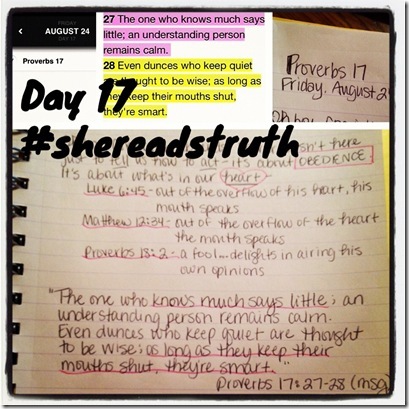 FRIDAY
AUGUST 24
DAY 17
Proverbs 17
27 The one who knows much says
little; an understanding person
remains calm.
28 Even dunces who keep quiet
are thought to be wise; as long as
they keep their mouths shut,
they're smart.
Proverbs 17
Friday, August 24
Day 17
#shereadstruth
isn't here
just to tell us how to act - it's about OBEDIENCE
It's about what's in our heart
Luke 6:45 - out of the overflow of his heart, his
mouth speaks
Matthew 12:34 - out of the overflow of the heart
the mouth speaks
Proverbs 18:2 - a fool... delights in airing his
own opinions
"The one who knows much says little; an
understanding person remains calm.
Even dunces who keep quiet are thought
to be wise; as long as they keep their
mouths shut, they're smart."
Proverbs 17:27-28 (msg)